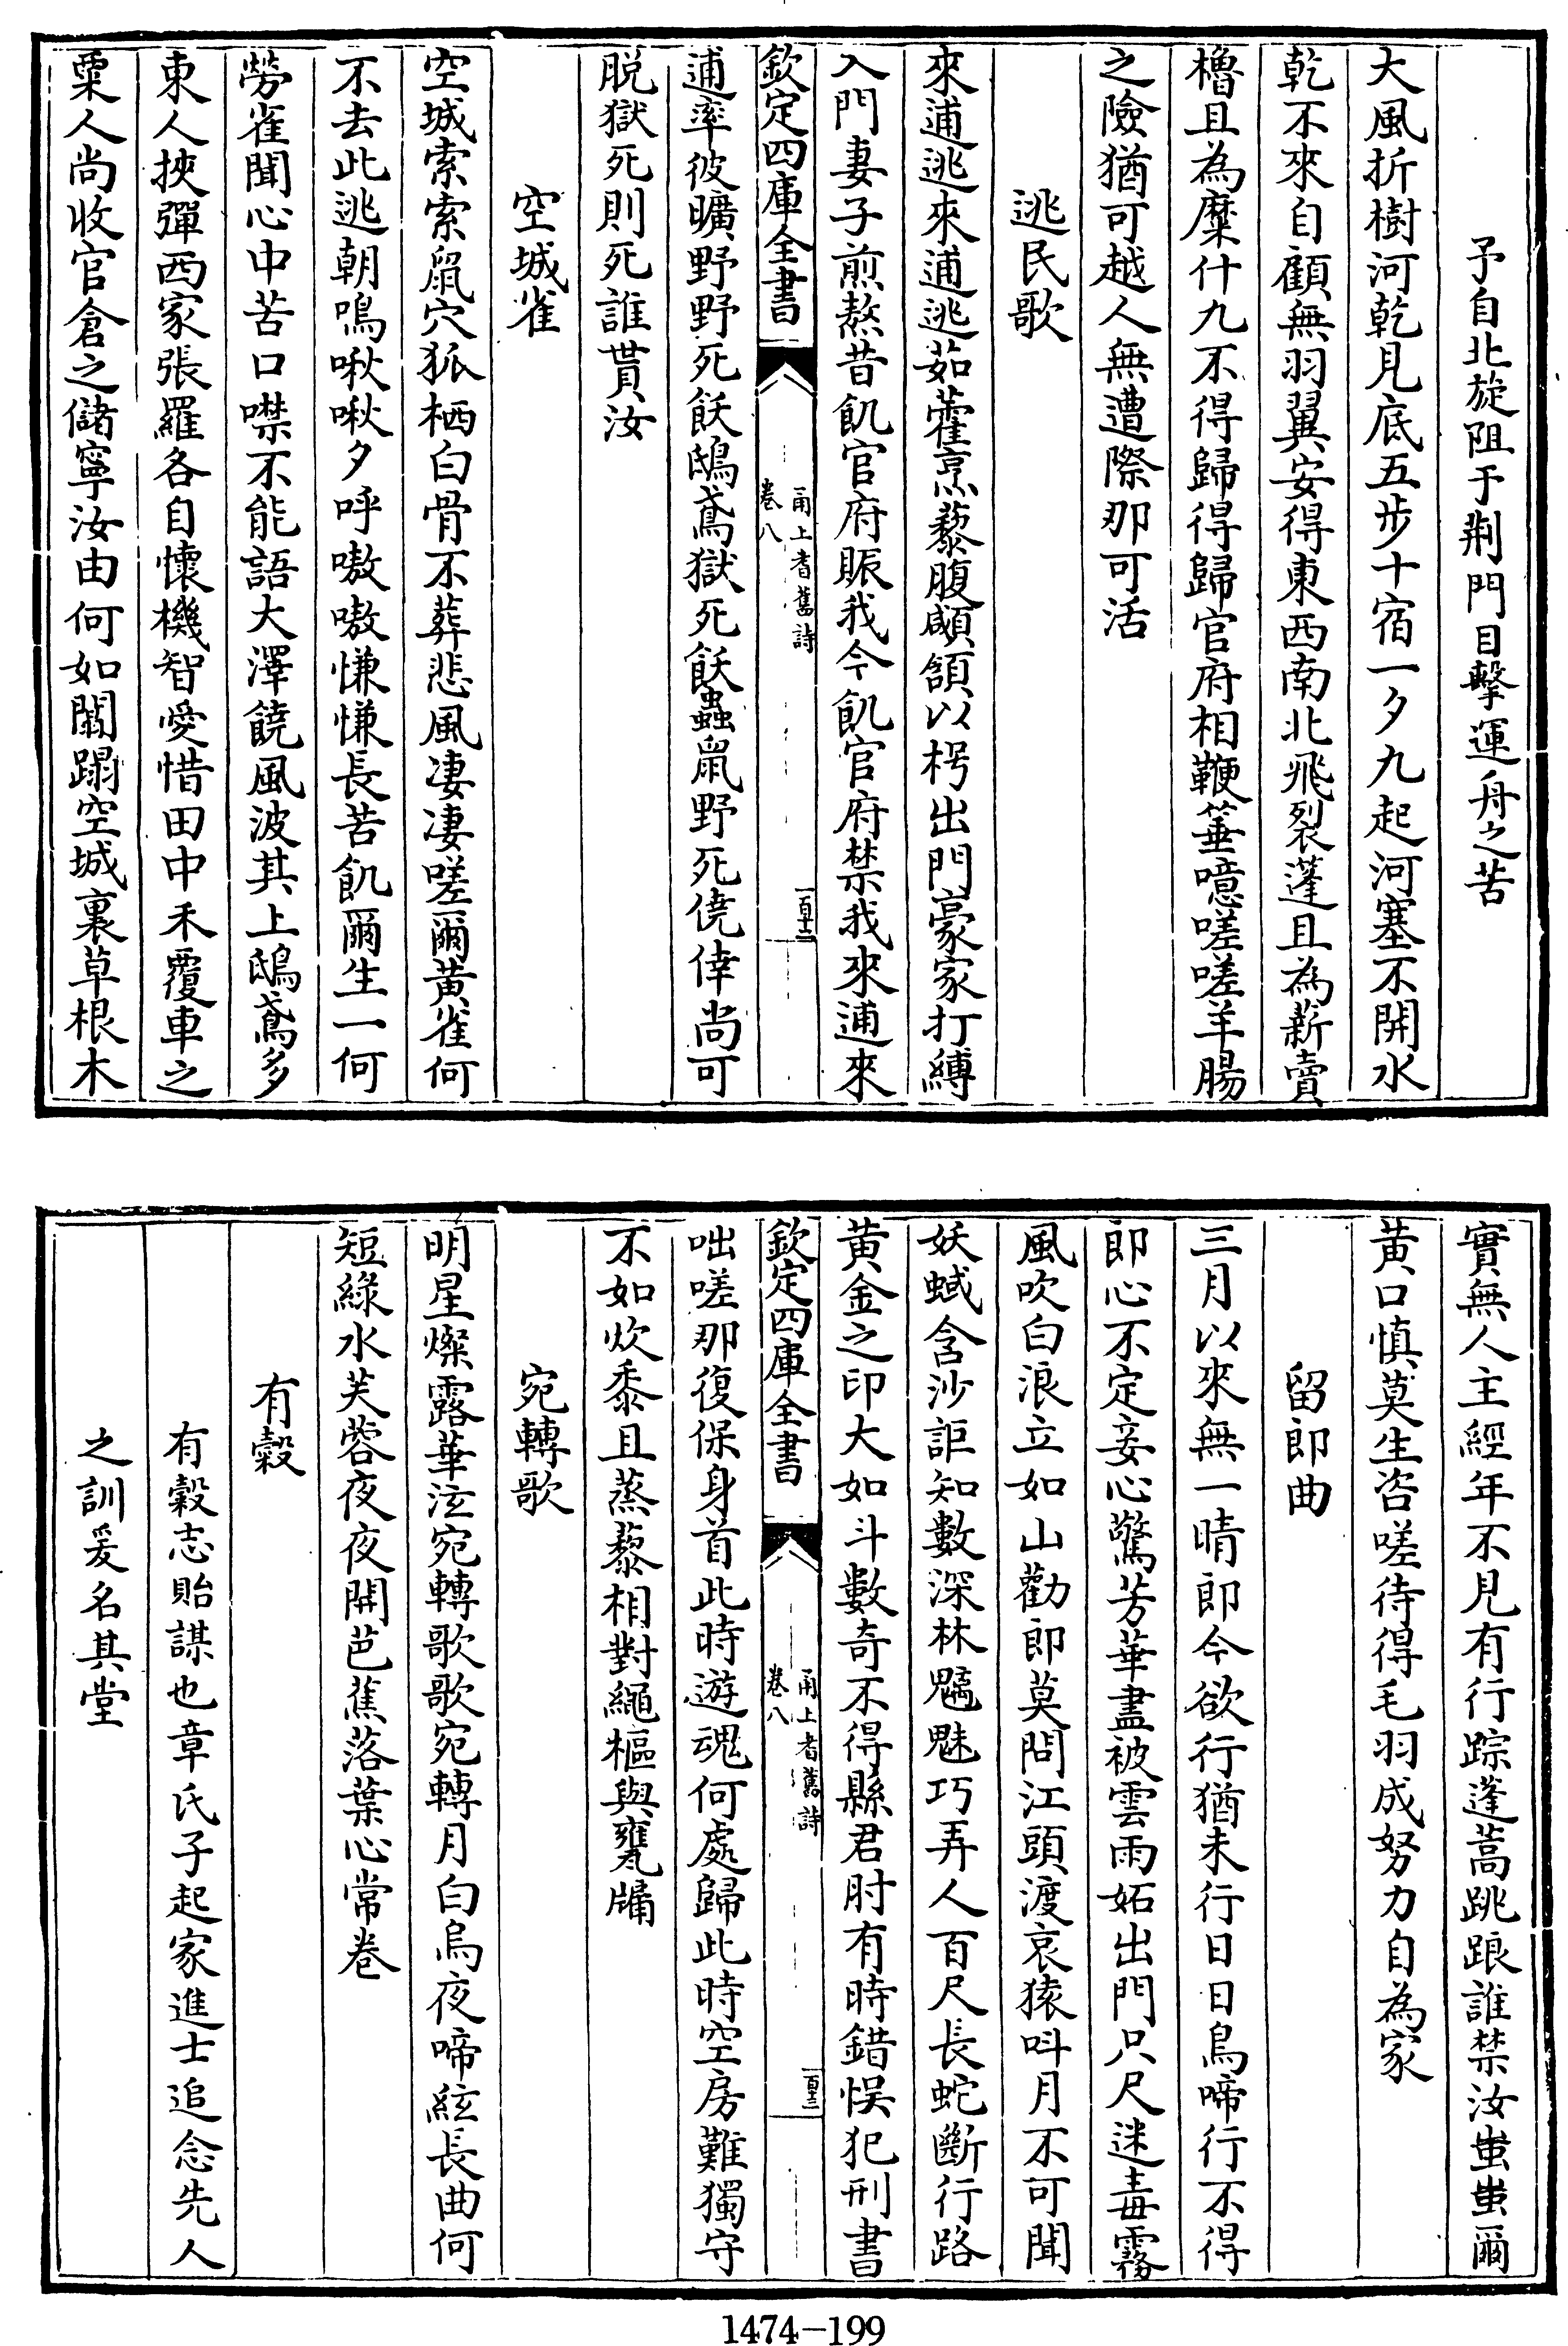 予自北旋阻于荆門目擊運舟之苦
大風折樹河乾見底五步十宿一夕九起河塞不開水
乾不來自顧無羽翼安得東西南北飛裂蓬且為薪賣
櫓且為糜什九不得歸得歸官府相鞭箠噫嗟嗟羊腸
之險猶可越人無遭際那可活
逃民歌
來逋逃來逋逃茹藿烹藜腹顑頷以枵出門豪家打縛
入門妻子煎熬昔飢官府賑我今飢官府禁我來逋來
欽定四庫全書
甬上耆舊詩
卷八
一百十二
逋率彼曠野野死飫鴟鳶獄死飫蟲䑕野死僥倖尚可
脱獄死則死誰貰汝
空城雀
空城索索䑕穴狐栖白骨不葬悲風凄凄嗟爾黄雀何
不去此逃朝鳴啾啾夕呼嗷嗷慊慊長苦飢爾生一何
勞雀聞心中苦口噤不能語大澤饒風波其上鴟鳶多
東人挾彈西家張羅各自懷機智愛惜田中禾覆車之
粟人尚收官倉之儲寧汝由何如闒蹋空城裏草根木
實無人主經年不見有行踪蓬蒿跳踉誰禁汝蚩蚩爾
黄口慎莫生咨嗟待得毛羽成努力自為家
留郎曲
三月以來無一晴郎今欲行猶未行日日鳥啼行不得
郎心不定妾心驚芳華盡被雲雨妬出門只尺迷毒霧
風吹白浪立如山勸郎莫問江頭渡哀猿呌月不可聞
妖蜮含沙詎知數深林魑魅巧弄人百尺長蛇斷行路
黄金之印大如斗數奇不得縣君肘有時錯悞犯刑書
欽定四庫全書
甬上耆舊詩
卷八
一百十三
咄嗟那復保身首此時遊魂何處歸此時空房難獨守
不如炊黍且蒸藜相對繩樞與甕牖
宛轉歌
明星燦露華泫宛轉歌歌宛轉月白烏夜啼絃長曲何
短綠水芙蓉夜夜開芭蕉落葉心常卷
有榖
有榖志貽謀也章氏子起家進士追念先人
之訓爰名其堂
1474-199